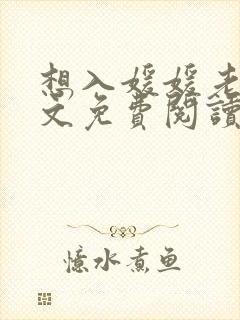 想入媛媛老
文免費閱讀
憶水煮鱼